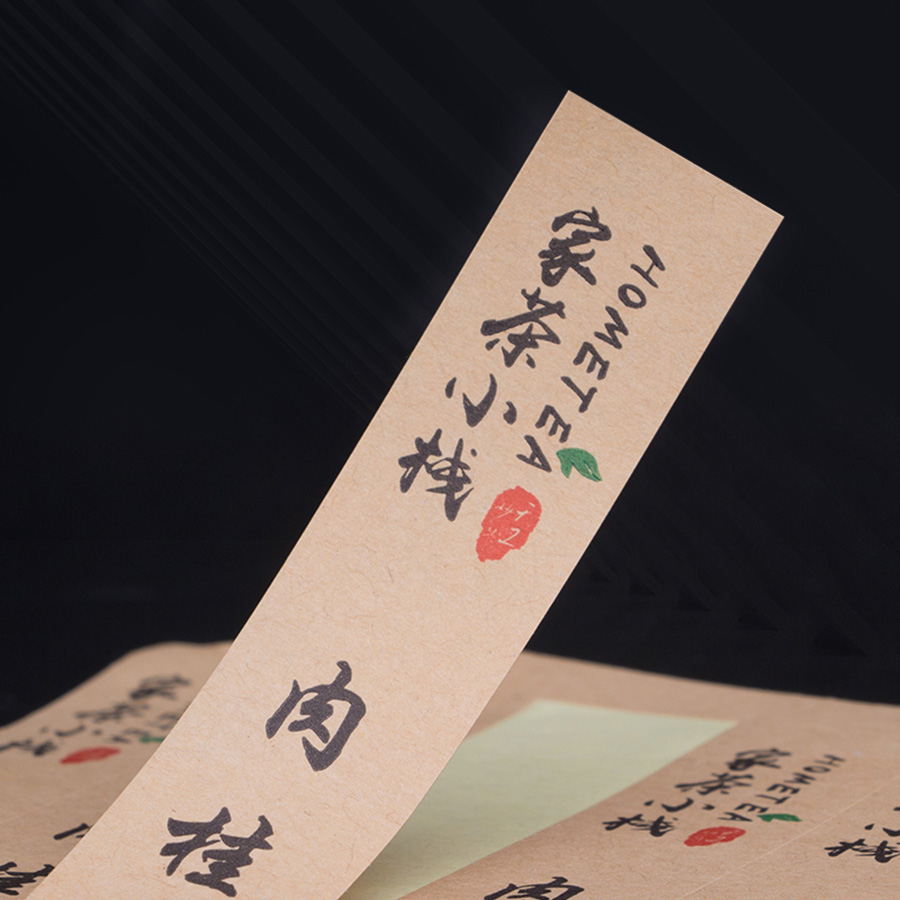 家茶小栈
HOMETEA
肉桂
家茶小栈
HOMETEA
家茶小栈
HOMETEA
肉
小栈